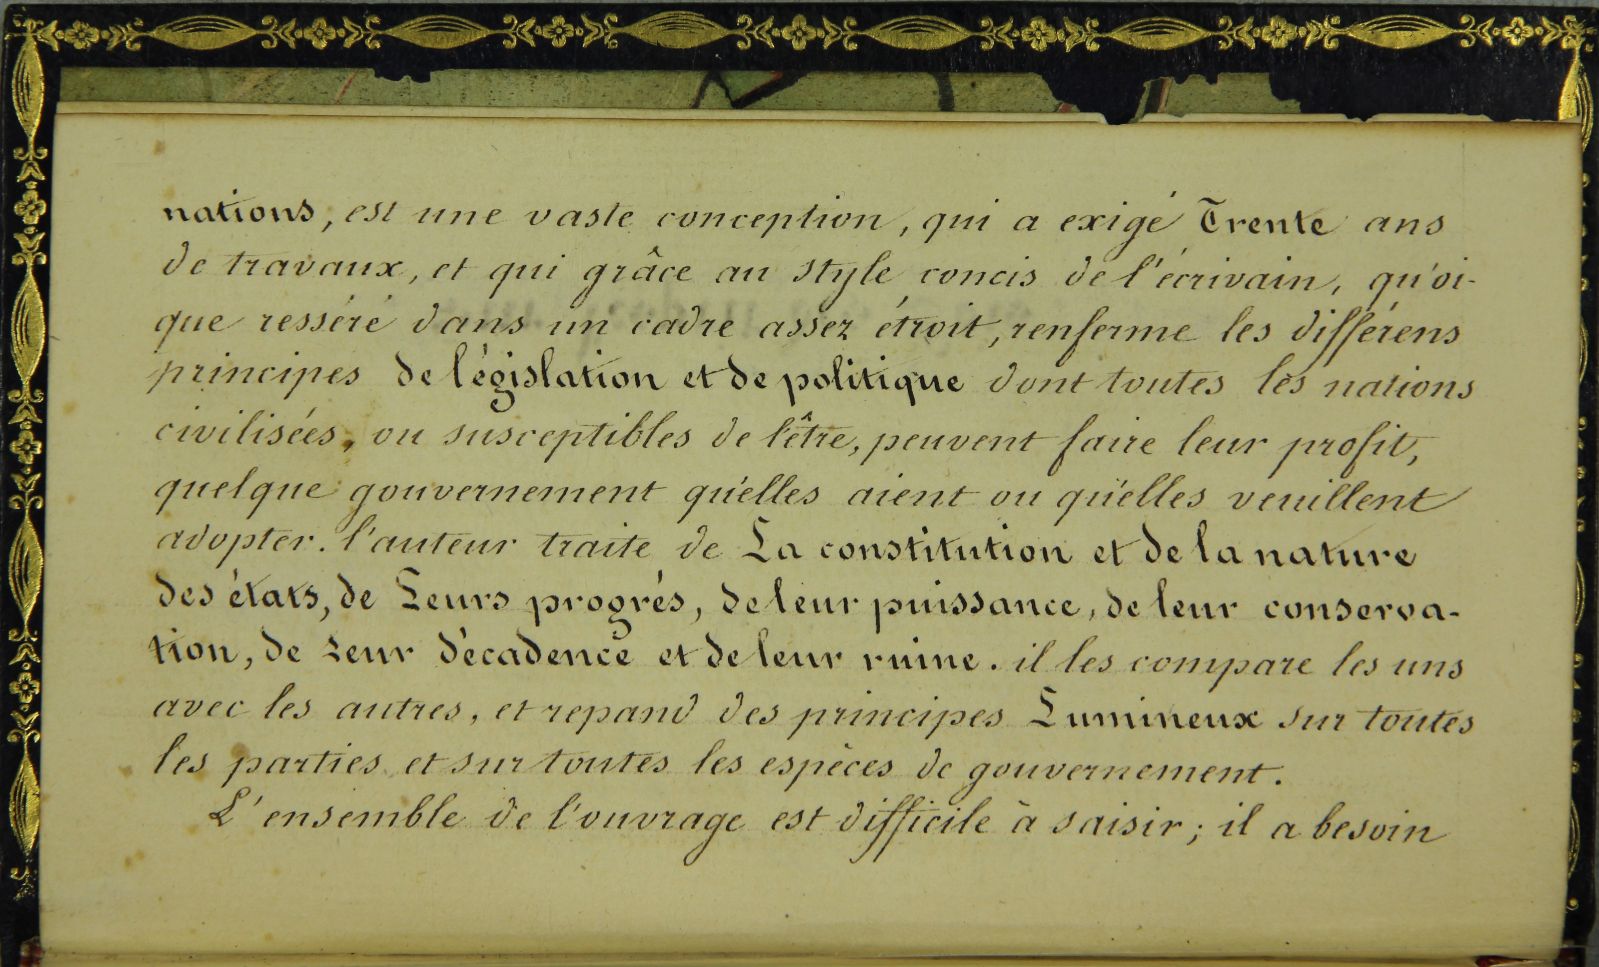 nations, est une vaste conception, qui a exigé Trente ans
de travaux, et qui grâce au style concis de l'écrivain, qu'oi-
que resséré dans un cadre assez étroit, renferme les différens
principes de législation et de politique dont toutes les nations
civilisées, ou susceptibles de l'être, peuvent faire leur profit,
quelque gouvernement qu'elles aient ou qu'elles veuillent
adopter. l'auteur traite de La constitution et de la nature
des états, de Leurs progrés, de leur puissance, de leur conserva-
tion, de Leur décadence et de leur ruine. il les compare les uns
avec les autres, et repand des principes Lumineux sur toutes
les parties et sur toutes les espèces de gouvernement.
L'ensemble de l'ouvrage est difficile à saisir; il a besoin